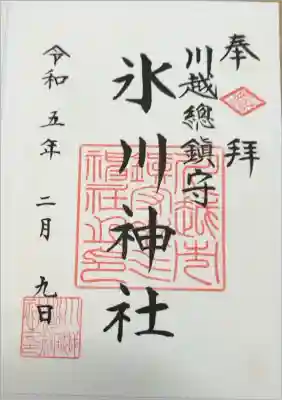 奉拝
川越總鎮守
氷川神社
令和五年二月九日